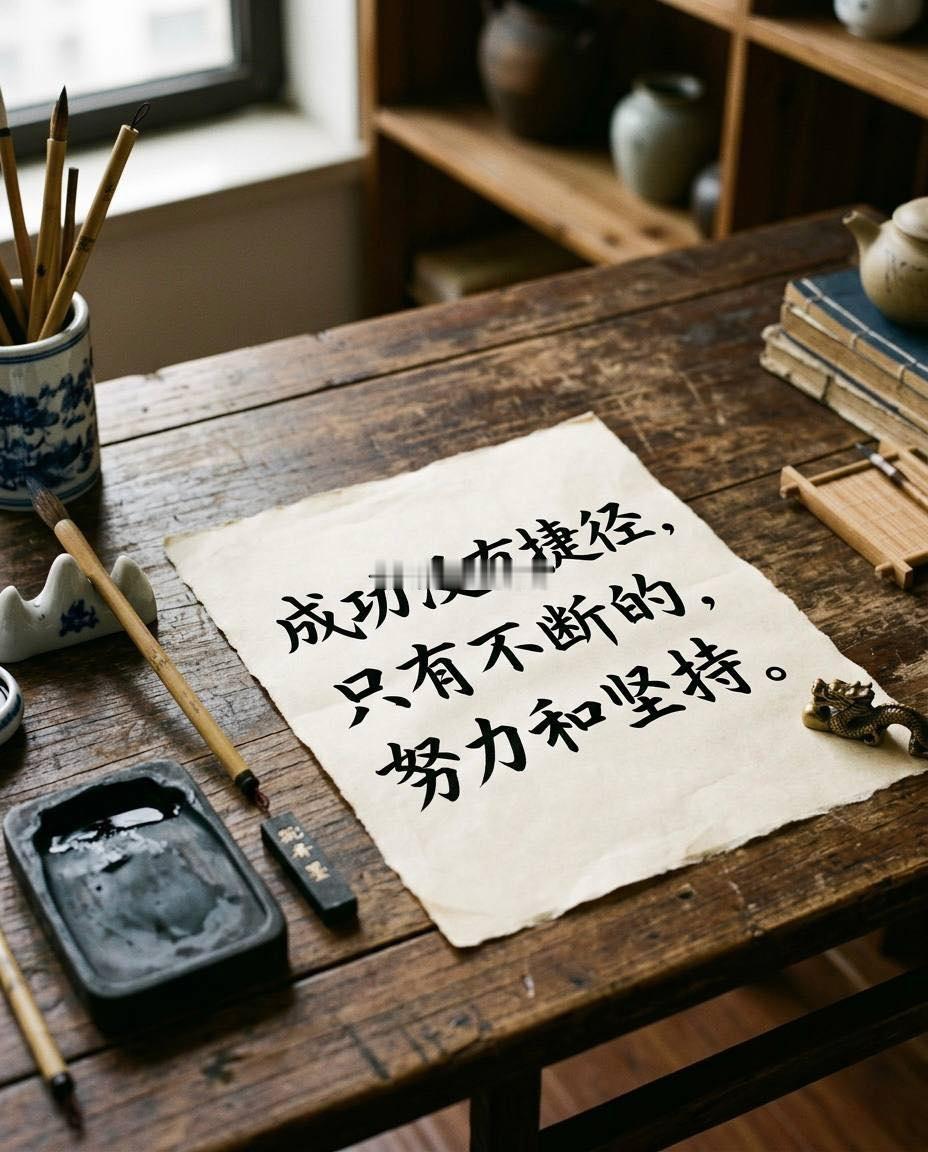 成功没有捷径，
只有不断的，
努力和坚持。